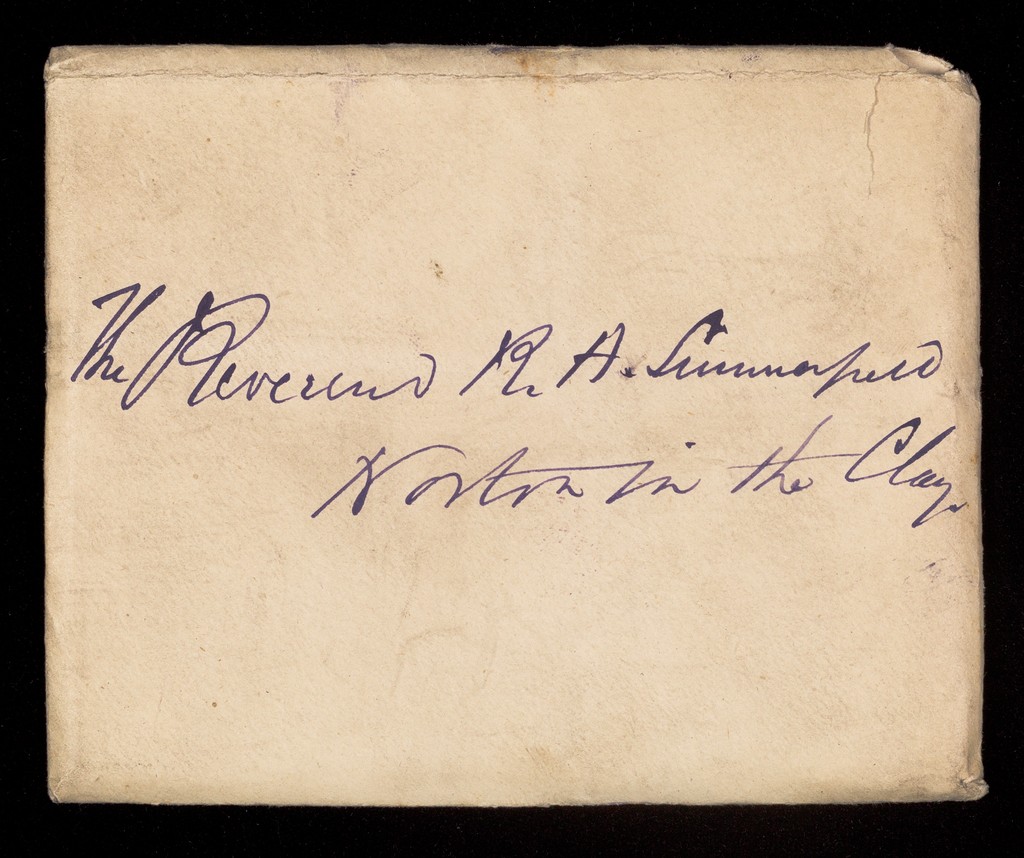 The Reverend R. A. Summerfield
Norton in the Clay